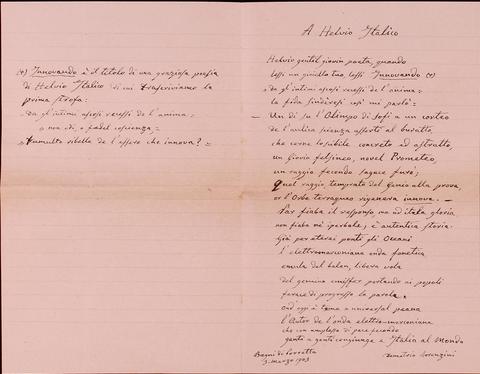 (+) Innovando è il titolo di una graziosa poesia
di Helvio Italico di cui trascriviamo la
prima strofa:
"da gl'intimi ascosi recessi dell'anima =
" o non di, o fadel coscienza, =
"tumulto ribelle de l'essere che innova? =
A Helvio Italico
Helvio gentil giovin poeta, quando
lessi un gioiello tuo, lessi Innovando (+)
"da gl'intimi ascosi recessi de l'anima =
la fida sindéresi così mi parlò:
— Un dì su l'Olimpo di sofi a un corteo
de l'antica scienza assorto al
che cerne lo subile concreto ed astratto,
un Giovin felsineo, novel Prometeo,
un raggio fecondo sagace furò;
Quel raggio, temprato del Genio alla prova,
or l'Orbe terraqueo rigenera innova. —
Par fiaba il responso, ma ad itala gloria
non fiaba nè iperbole; è autentica storia.
Già per eterei ponti gli Oceani
l'elettromarconiana onda fonetica
emula del balen, libera vola
del genuino portando ai popoli
ferace di progresso la parola.
Ond'oggi è tema a universal peana
l'Autor de l'onda elettro-marconiana
che con amplesso di pace fecondo
genti a genti congiunge e Italia al Mondo
Bagni di Porretta
3. marzo 1903
Demetrio Lorenzini